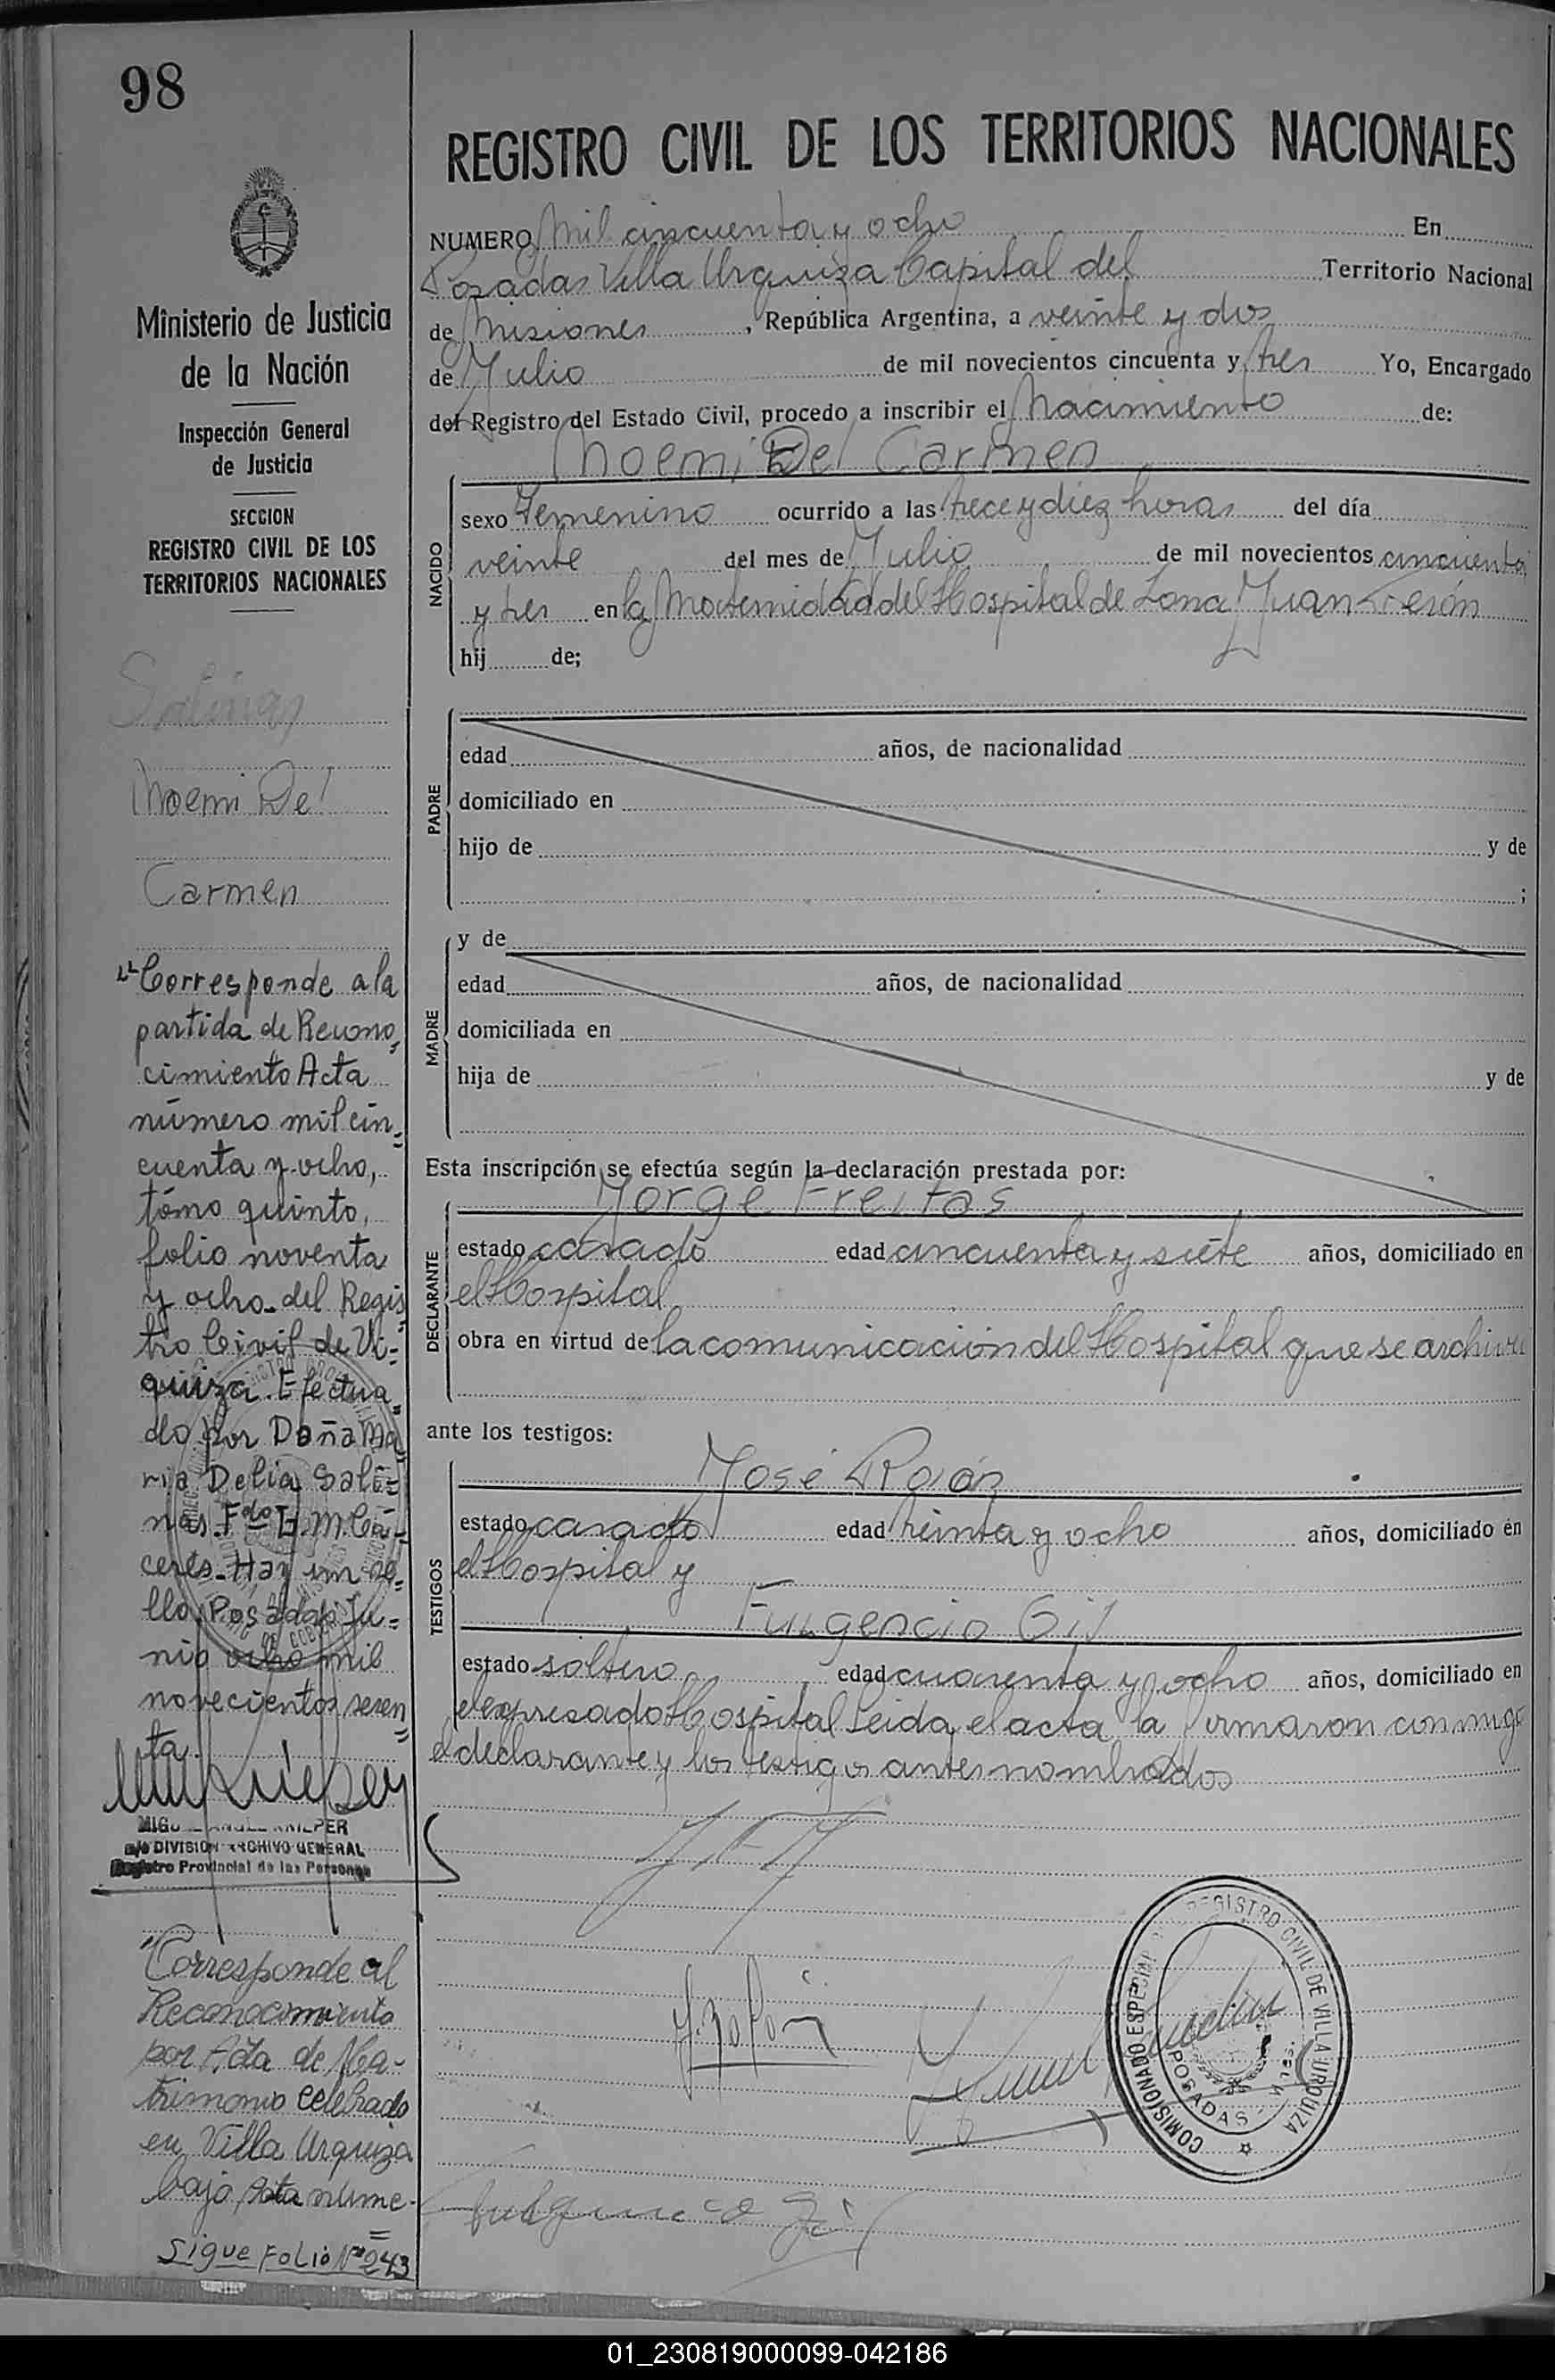 98
REGISTRO CIVIL DE LOS TERRITORIOS NACIONALES
Ministerio de Justicia
de la Nación
Inspección General
de Justicia
SECCION
REGISTRO CIVIL DE LOS
TERRITORIOS NACIONALES
Salinas
Noemi Del
Carmen
"Corresponde a la
partida de Recono=
cimiento Acta
número mil cin=
cuenta y ocho,
tómo quinto,
folio noventa
y ocho del Regis=
tro Civil de Ur=
quiza. Efectua=
do por Doña Ma=
ria Delia Sali=
nas. Fdo E. M. Cá=
ceres. Hay un se=
llo. Posadas Ju=
nio ocho mil
novecientos sesen=
ta
DIVISION ARCHIVO GENERAL
Registro Provincial de las Personas
"Corresponde al
Reconocimiento
por Acta de Ma-
trimonio celebrado
en Villa Urquiza
bajo Acta núme-
Sigue Folio Nº 243
NUMERO Mil cincuenta y ocho En
Posadas Villa Urquiza Capital del Territorio Nacional
de Misiones, República Argentina, a veinte y dos
de Julio de mil novecientos cincuenta y tres Yo, Encargado
del Registro del Estado Civil, procedo a inscribir el Nacimiento de:
Noemi Del Carmen
NACIDO
sexo Femenino ocurrido a las trece y diez horas del día
veinte del mes de Julio de mil novecientos cincuenta
y tres en la Maternidad del Hospital de Zona Juan Perón
hij de;
PADRE
edad años, de nacionalidad
domiciliado en
hijo de y de
;
MADRE
y de
edad años, de nacionalidad
domiciliada en
hija de y de
Esta inscripción se efectúa según la declaración prestada por:
Jorge Freitas
DECLARANTE
estado casado edad cincuenta y siete años, domiciliado en
el Hospital
obra en virtud de la comunicación del Hospital que se archiva
ante los testigos:
TESTIGOS
José Rolón
estado casado edad treinta y ocho años, domiciliado en
el Hospital y
Fulgencio Gil
estado soltero edad cuarenta y ocho años, domiciliado en
el expresado Hospital Leida el acta la firmaron conmigo
el declarante y los testigos antes nombrados
J. Rolón
COMISIONADO ESPECIAL REGISTRO CIVIL DE VILLA URQUIZA
POSADAS
Fulgencio Gil
01_230819000099-042186